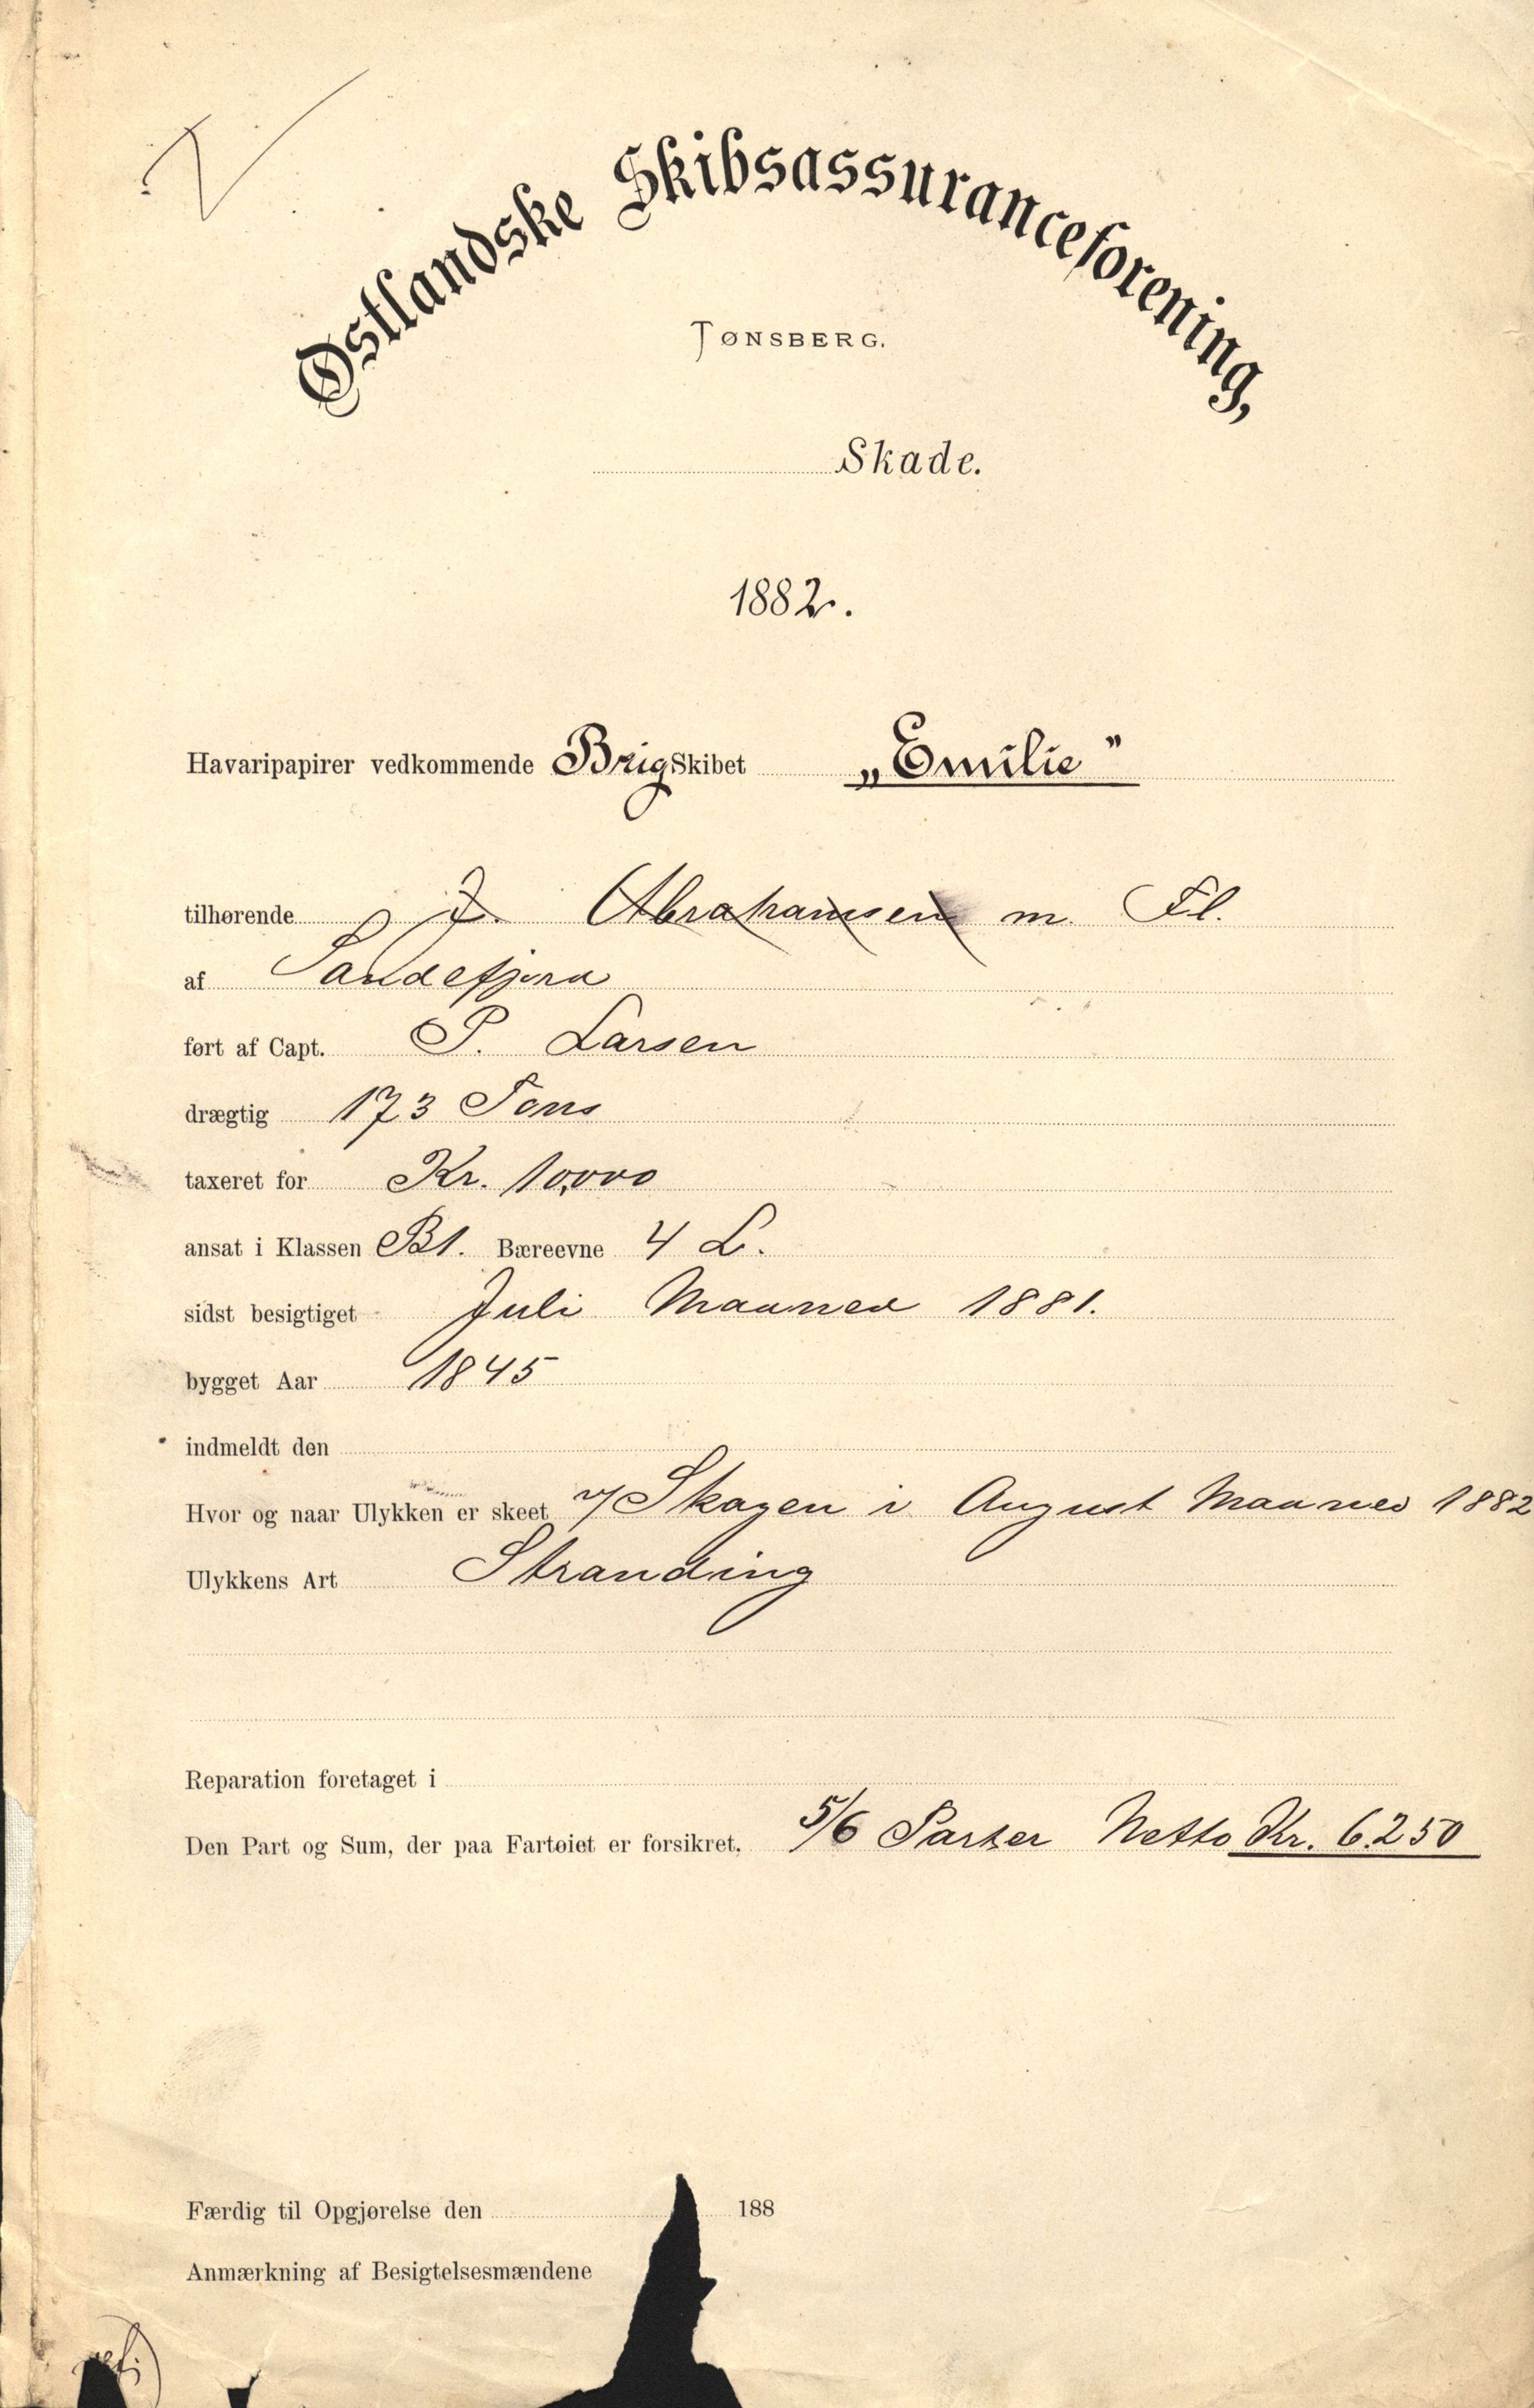 Østlandske Skibsassuranceforening,
TØNSBERG.
Skade.
1882.
Havaripapirer vedkommende Brig Skibet „Emilie"
tilhørende J. Abrahamsen m. Fl.
af Sandefjord
ført af Capt. P. Larsen
drægtig 173 Tons
taxeret for Kr. 10,000
ansat i Klassen B1. Bæreevne 4 L.
sidst besigtiget Juli Maaned 1881.
bygget Aar 1845
indmeldt den
Hvor og naar Ulykken er skeet v/ Skagen i August Maaned 1882
Ulykkens Art Stranding
Reparation foretaget i
Den Part og Sum, der paa Fartøiet er forsikret, 5/6 Parter Netto Kr. 6250
Færdig til Opgjørelse den 188
Anmærkning af Besigtelsesmændene